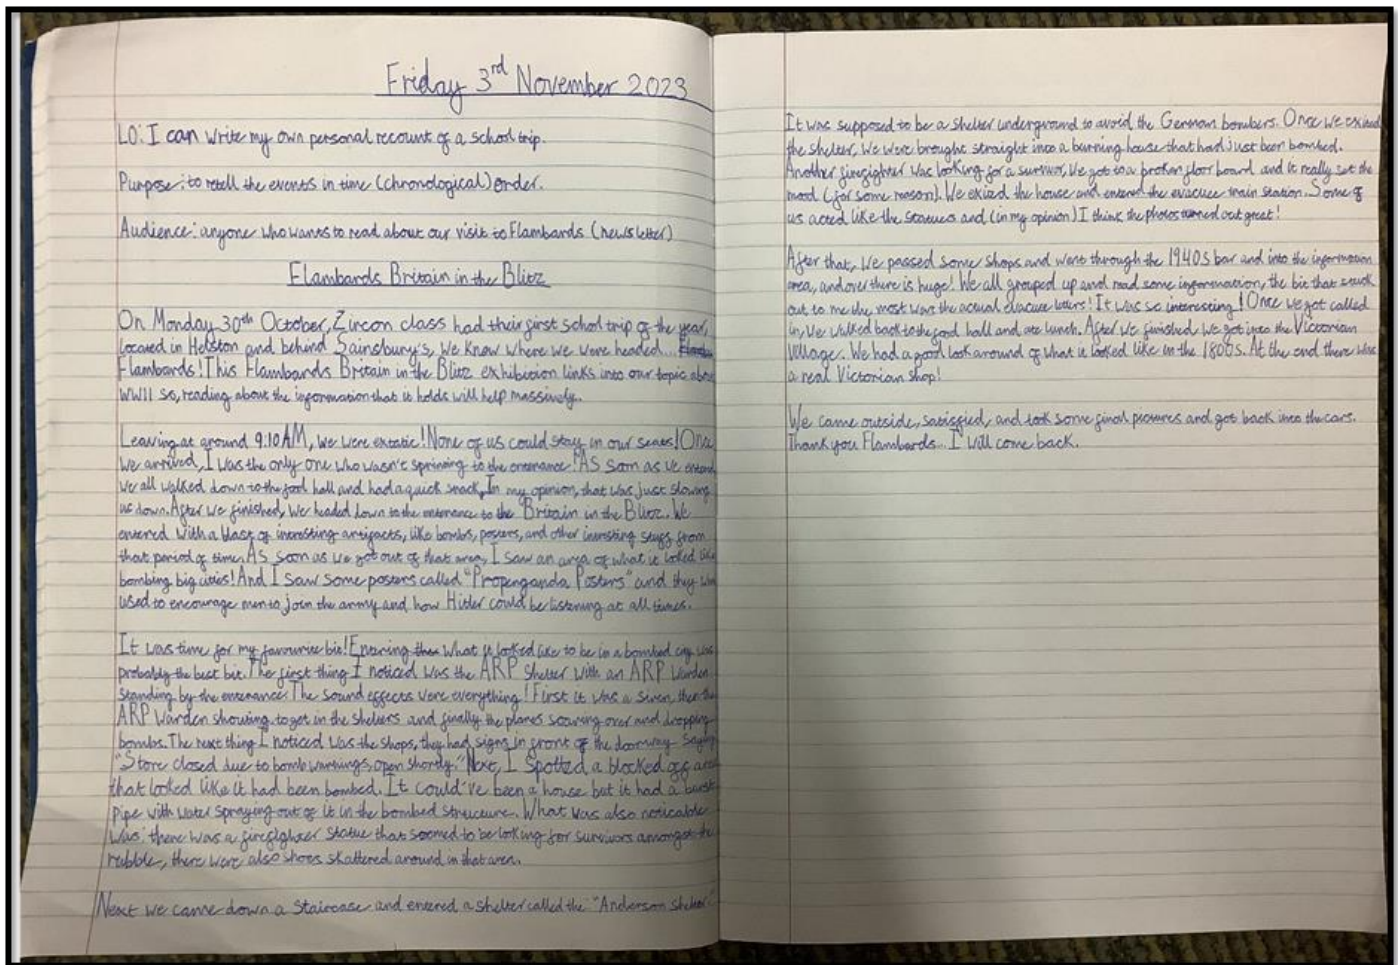 Friday 3rd November 2023
LO: I can write my own personal recount of a school trip.
Purpose: to retell the events in time (chronological) order.
Audience: anyone who wants to read about our visit to Flambards (newsletter)
Flambards Britain in the Blitz
On Monday 30th October, Zircon class had their first school trip of the year,
located in Helston and behind Sainsbury's, we know where we were headed...
Flambards! This Flambards Britain in the Blitz exhibition links into our topic about
WWII so, reading about the information that it holds will help massively.
Leaving at around 9:10AM, we were extatic! None of us could stay in our seats! Once
we arrived, I was the only one who wasn't sprinting to the entenance! AS soon as we
we all walked down to the food hall and had a quick snack, In my opinion, that was just slowing
us down. After we finished, we headed down to the entenance to the "Britain in the Blitz. We
entered with a blast of intresting artifacts, like bombs, posters, and other intresting stuff from
that period of time. AS soon as we got out of that area, I saw an area of what it looked like
bombing big cities! And I saw some posters called "Propenganda Posters" and they
used to encourage men to join the army and how Hitler could be listening at all times.
It was time for my favourite bit! Entring what it looked like to be in a bombed city was
probably the best bit. The first thing I noticed was the ARP Shelter with an ARP Warden
standing by the entenance. The sound effects were everything! First it was a siren, then the
ARP Warden shouting to get in the shelters and finally the planes soaring over and dropping
bombs. The next thing I noticed was the shops, they had signs in front of the doorway saying
"Store closed due to bomb warnings, open shortly." Next, I spotted a blocked off area
that looked like it had been bombed. It could've been a house but it had a burst
pipe with water spraying out of it in the bombed structure. What was also noticable
was: there was a firefighter statue that seemed to be looking for survivors amongst the
rubble, there were also shoes skattered around in that area.
Next we came down a staircase and entered a shelter called the "Anderson Shelter"
It was supposed to be a shelter underground to avoid the German bombers. Once we exited
the shelter, we were brought straight into a burning house that had just been bombed.
Another firefighter was looking for a survivor, we got to a broken floor board and it really set the
mood (for some reason). We exized the house and entered the evacuee train station. Some of
us acted like the statues and (in my opinion) I think the photos turned out great!
After that, we passed some shops and went through the 1940s bar and into the information
area, and over there is huge! We all grouped up and read some information, the bit that stuck
out to me the most was the actual evacuee letters! It was so interesting! Once we got called
in, we walked back to the food hall and ate lunch. After we finished we got into the Victorian
village. We had a good look around of what it looked like in the 1800s. At the end there was
a real Victorian shop!
We came outside, satisfied, and took some final pictures and got back into the cars.
Thank you Flambards... I will come back.